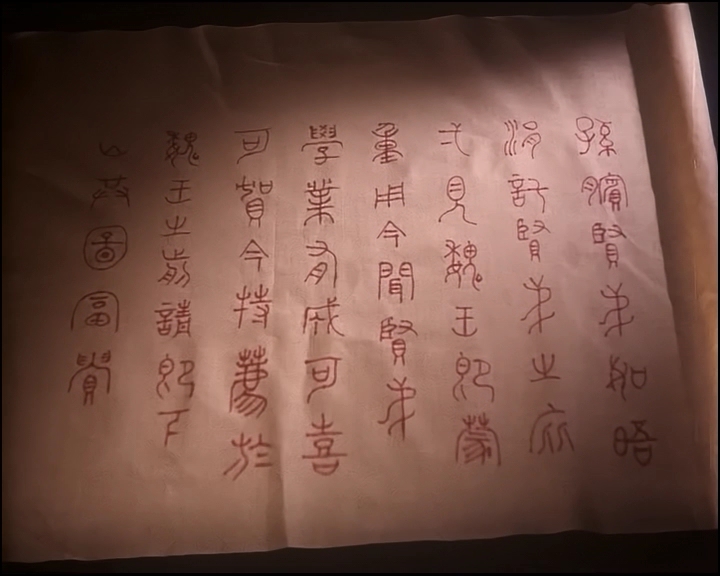 孫臏賢弟如晤
涓託賢弟之庇
弌見魏王即蒙
重用今聞賢弟
學業有成可喜
可賀今特薦於
魏王之前請即下
山共圖富貴